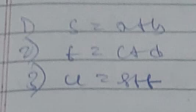 1) s = a+b
2) t = c+d
3) u = s+t